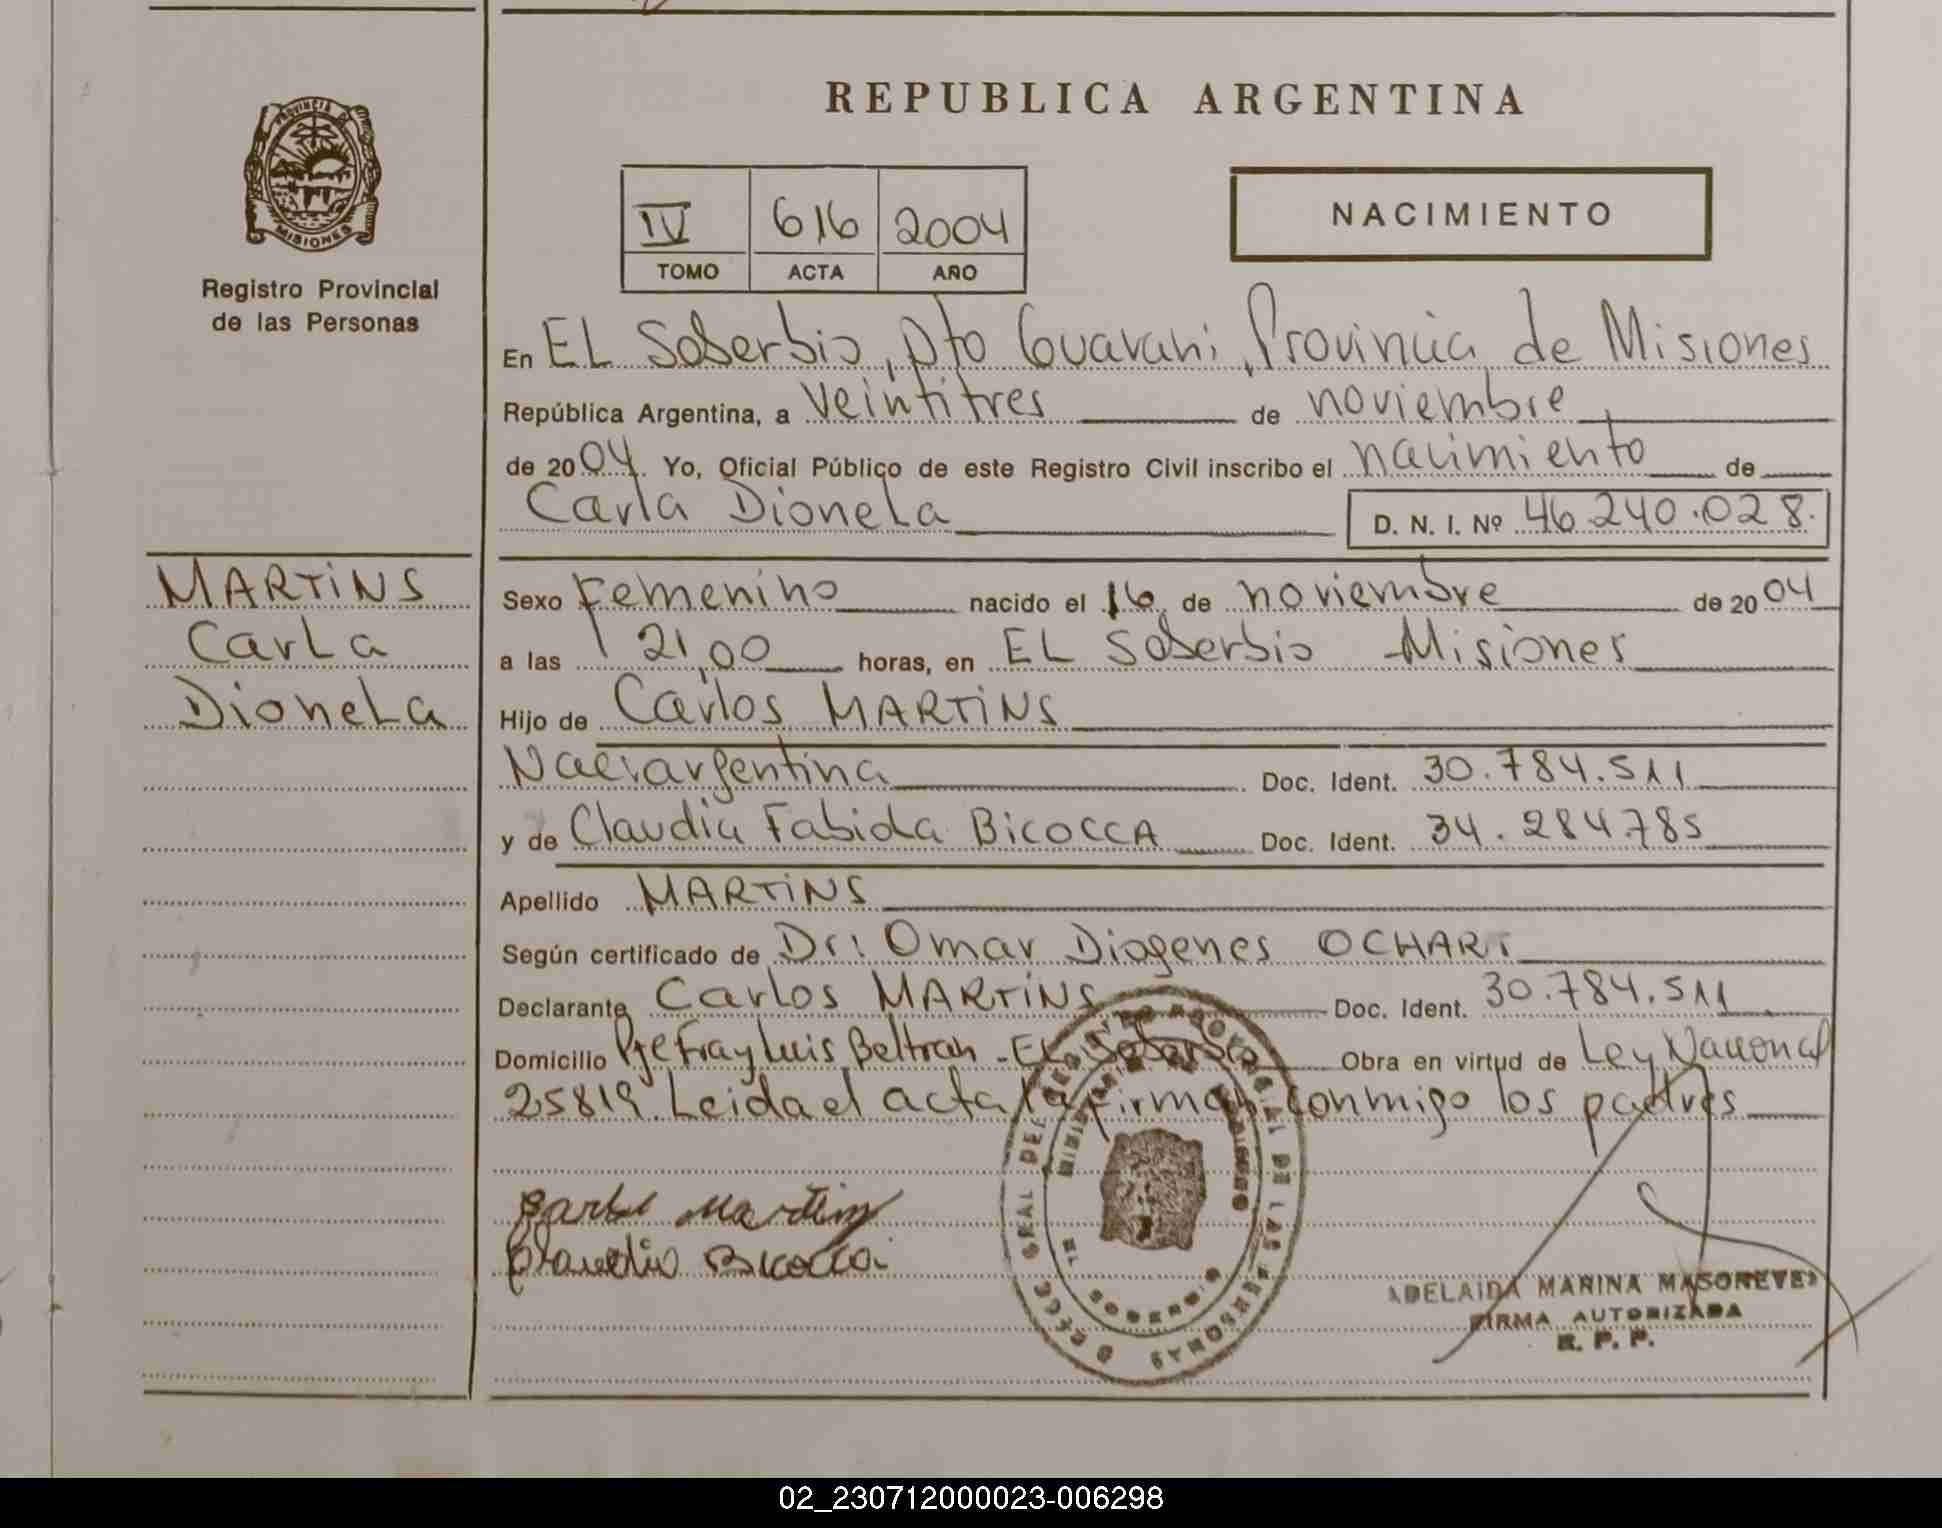 REPUBLICA ARGENTINA
PROVINCIA DE
MISIONES
Registro Provincial
de las Personas
IV 616 2004
TOMO ACTA AÑO
NACIMIENTO
En EL Soberbio, Dto Guarani, Provincia de Misiones
República Argentina, a veintitres de noviembre
de 2004. Yo, Oficial Público de este Registro Civil inscribo el nacimiento de
Carla Dionela D. N. I. Nº 46.240.028.
MARTiNS
Carla
Dionela
Sexo Femenino nacido el 16 de noviembre de 2004
a las 21,00 horas, en EL Soberbio Misiones
Hijo de Carlos MARTiNS
Nac: argentina Doc. Ident. 30.784.511
y de Claudia Fabiola BiCOCCA Doc. Ident. 34.284.785
Apellido MARTiNS
Según certificado de Dr: Omar Diogenes OCHART
Declarante Carlos MARTiNS Doc. Ident. 30.784.511
Domicilio Pje Fray Luis Beltran - EL Soberbio Obra en virtud de Ley Nacional
25819. Leida el acta la firman conmigo los padres
Carlos Martins
Claudia Bicocca
ADELAIDA MARINA MASORETE
FIRMA AUTORIZADA
R. P. P.
02_230712000023-006298